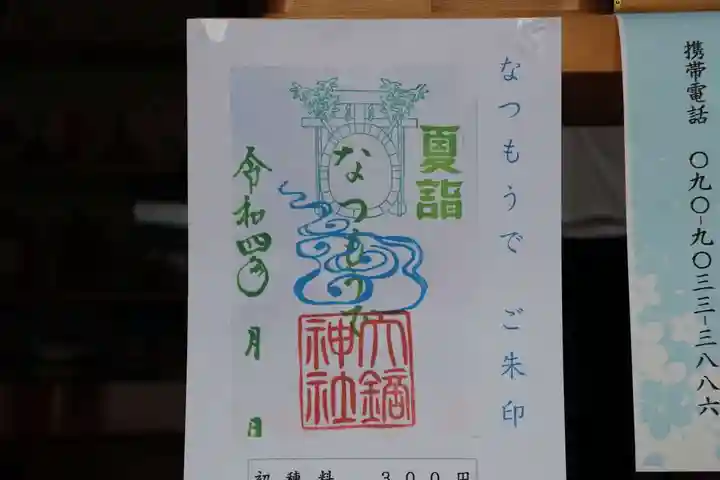 携帯電話 〇九〇-九〇三三-三八八六
なつもうで ご朱印
夏詣
なつもうで
令和四年
月 日
神社
初穂料 300円